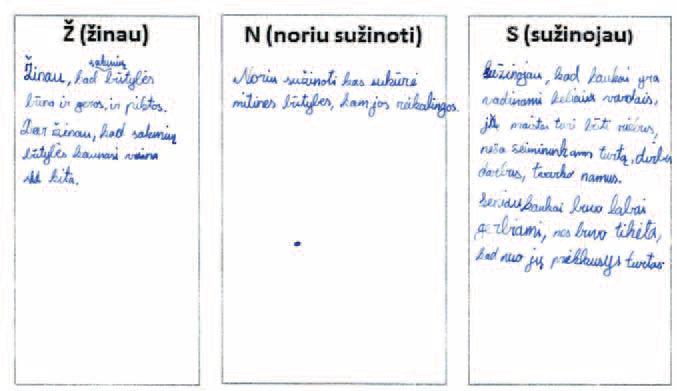 Ž (žinau)
sakmių
Žinau, kad būtylės
būna ir geros, ir piktos.
Dar žinau, kad sakmių
būtylės kaunasi viena
kita.
N (noriu sužinoti)
Noriu sužinoti kas sukūrė
mitines būtyles, kam jos reikalingos.
S (sužinojau)
Sužinojau, kad kaukai yra
vadinami keliais vardais,
jų maistas turi būti riebus,
neša šeimininkams turtą, dirba
darbus, tvarko namus.
Seniau kaukai buvo labai
gerbiami, nes buvo tikėta,
kad nuo jų priklausys turtas